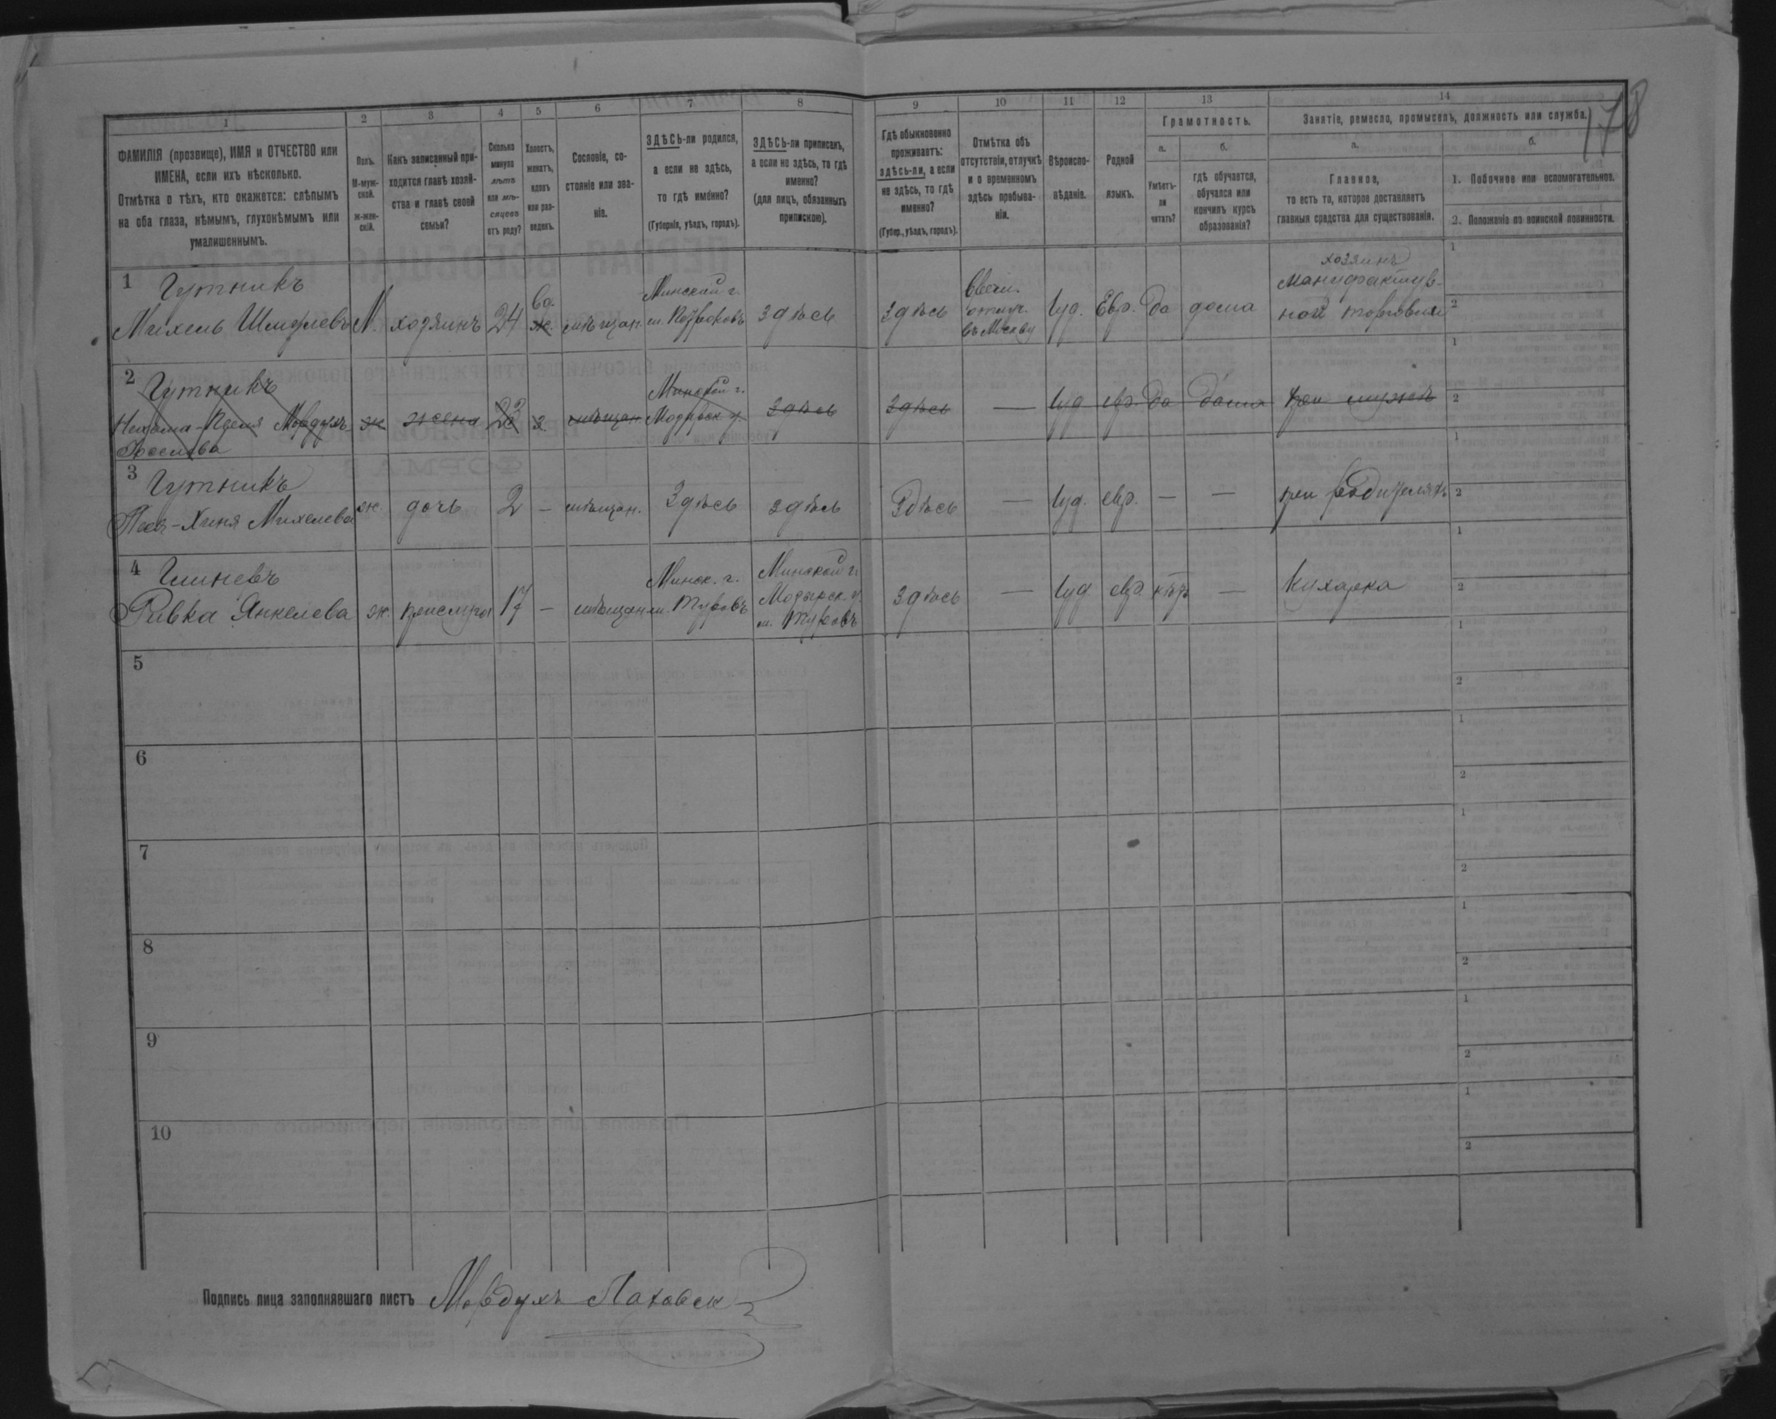 178
1 2 3 4 5 6 7 8 9 10 11 12 13 14
ФАМИЛІЯ (прозвище), ИМЯ и ОТЧЕСТВО или
ИМЕНА, если ихъ нѣсколько.
Отмѣтка о тѣхъ, кто окажется: слѣпымъ
на оба глаза, нѣмымъ, глухонѣмымъ или
умалишеннымъ.
Полъ.
М-муж-
ской.
ж-жен-
скій.
Какъ записанный при-
ходится главѣ хозяй-
ства и главѣ своей
семьи?
Сколько
минуло
лѣтъ
или мѣ-
сяцевъ
отъ роду?
Холостъ,
женатъ,
вдовъ
или раз-
веденъ.
Сословіе, со-
стояніе или зва-
ніе.
ЗДѢСЬ-ли родился,
а если не здѣсь,
то гдѣ именно?
(Губернія, уѣздъ, городъ).
ЗДѢСЬ-ли приписанъ,
а если не здѣсь, то гдѣ
именно?
(для лицъ, обязанныхъ
припискою).
Гдѣ обыкновенно
проживаетъ:
здѣсь-ли, а если
не здѣсь, то гдѣ
именно?
(Губер., уѣздъ, городъ).
Отмѣтка объ
отсутствіи, отлучкѣ
и о временномъ
здѣсь пребыва-
ніи.
Вѣроиспо-
вѣданіе.
Родной
языкъ.
Грамотность.
а.
Умѣетъ-
ли
читать?
б.
гдѣ обучается,
обучался или
кончилъ курсъ
образованія?
Занятіе, ремесло, промыселъ, должность или служба.
а.
Главное,
то есть то, которое доставляетъ
главныя средства для существованія.
б.
1. Побочное или вспомогательное.
2. Положеніе по воинской повинности.
1 Гутникъ
Михель Шмуйлевъ М. хозяинъ 24 ж. мѣщан.
Минской г.
здѣсь здѣсь
отлуч.
въ Москву
Іуд. Евр. да дома
хозяинъ
мануфактур-
ной торговли
1
2
2 Гутникъ
Мордух-
ж жена 23 з мѣщан.
Минской г.
здѣсь здѣсь — Іуд евр. да дома при мужѣ
1
2
3 Гутникъ
Михелева ж дочь 2 — мѣщан. Здѣсь здѣсь Здѣсь — Іуд. евр. — — при родителяхъ
1
2
4
Ривка Янкелева ж. прислуга 17 — мѣщан
Минск. г.
м. Туровъ
Минской г.
Мозырск. у.
м. Туровъ
здѣсь — Іуд евр нѣтъ — Кухарка
1
2
5
1
2
6
1
2
7
1
2
8
1
2
9
1
2
10
1
2
Подпись лица заполнявшаго листъ Мордухъ